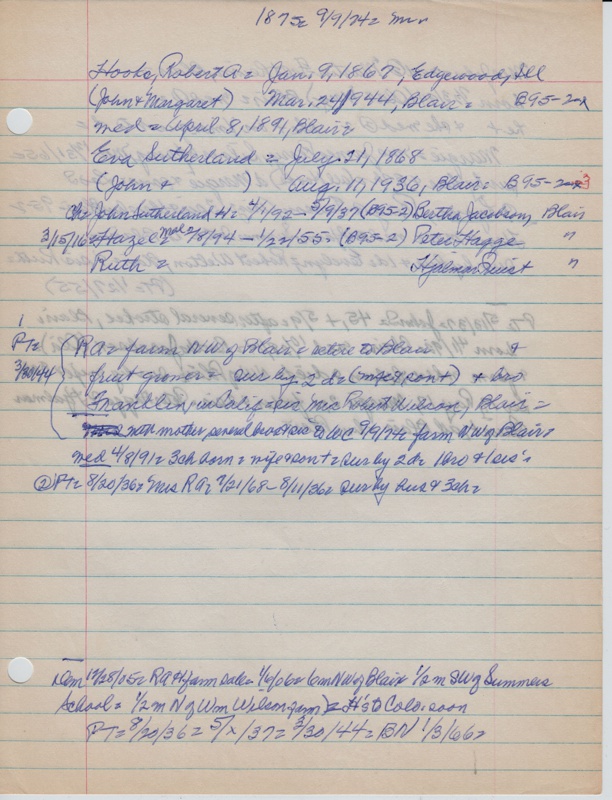 1875= 9/9/74=
Hooks, Robert A= Jan. 9, 1867, Edgewood, Ill
(John & Margaret) Mar. 24, 1944, Blair= B95-2
med= April 8, 1891, Blair=
Eva Sutherland = July 21, 1868
(John + ) Aug. 11, 1936, Blair= B95-2 3
Ch= John Sutherland H= 4/1/92 - 5/9/37 (B95-2) Bertha Jacobson, Blair
3/15/16= Hazel= 2/8/94 - 1/22/55= (B95-2) Peter Hagge "
Ruth = Hjalmar Quist "
1
PT= RA= farm NW of Blair= retire to Blair &
3/30/44 fruit grower = sur by 2 da (wife & son +) + bro
Franklin, in Calif= sis Mrs Robert Wilson, Blair=
with mother several bros & sis to WC 9/9/74= farm NW of Blair=
med 4/8/91= 3 ch born= wife & son += sur by 2 da 1 bro & 1 sis=
② PT= 8/20/36= Mrs RA= 7/21/68 - 8/11/36= sur by hus & 3 ch=
12/28/05= RA H farm sale= 1/6/06= 6 m NW of Blair 1/2 m SW of Summers
School= 1/2 m N of Wm Wilson farm)= H's to Colo soon
PT= 8/20/36= 5/x/37= 3/30/44= BN 1/3/66=